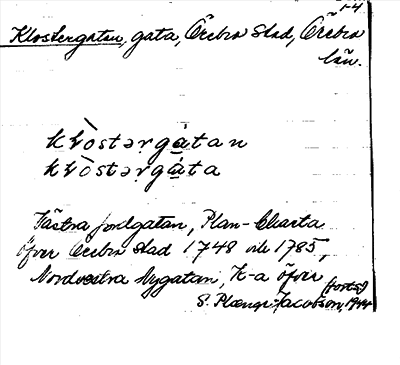 14
Klostergatan, gata, Örebro stad, Örebro
län.
klòstərgàtan
klòstərgàta
Västra fordgatan, Plan-Charta
öfver Örebro stad 1748 och 1785,
Nordvestra Nygatan, K-a öfver
(forts.)
S. Plænge-Jacobson, 1944